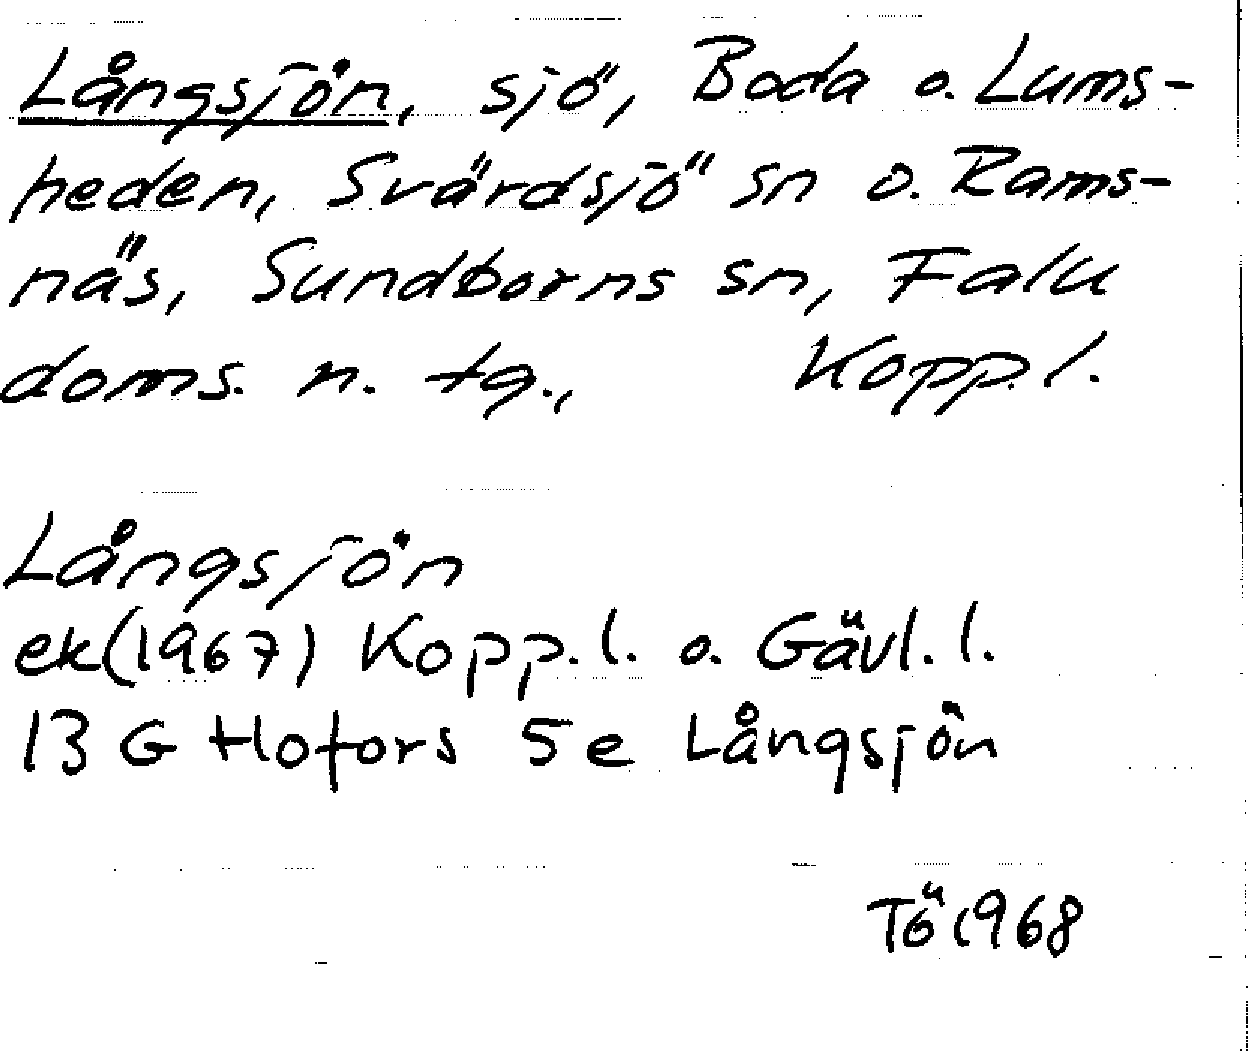 Långsjön, sjö, Boda o. Lums-
heden, Svärdsjö sn o. Rams-
näs, Sundborns sn, Falu
doms. n. tg., Kopp.l.
Långsjön
ek(1967) Kopp.l. o. Gävl.l.
13 G Hofors 5e Långsjön
Tö 1968